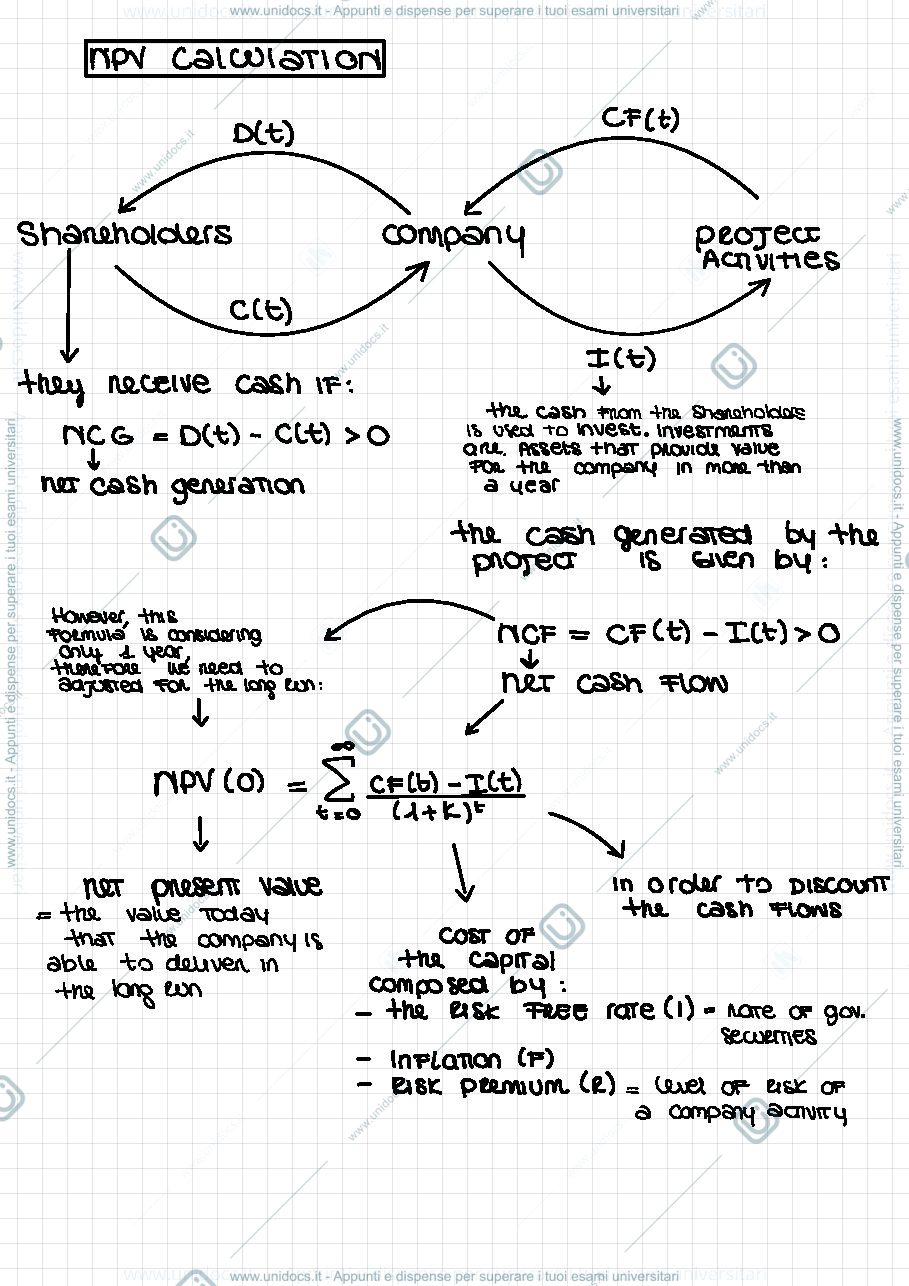 www.unidocs.it - Appunti e dispense per superare i tuoi esami universitari
NPV CALCULATION
D(t)
CF(t)
Shareholders
company
PROJECT
ACTIVITIES
C(t)
I(t)
they receive cash IF:
the cash from the Shareholders
is used to invest. Investments
are. Assets that provide value
FOR the company in more than
a year
NCG = D(t) - C(t) > 0
net cash generation
the cash generated by the
project is given by:
However, this
Formula is considering
only 1 year,
therefore we need to
adjusted for the long run:
NCF = CF(t) - I(t) > 0
net cash flow
NPV(0) = ∑ CF(t) - I(t)
∞
t=0
(1+K)^t
net present value
= the value today
that the company is
able to deliver in
the long run
in order to DISCOUNT
the cash flows
COST OF
the capital
composed by:
- the RISK FREE rate (I) = rate of gov.
securities
- Inflation (F)
- RISK premium (R) = level of risk of
a company activity
www.unidocs.it - Appunti e dispense per superare i tuoi esami universitari
www.unidocs.it - Appunti e dispense per superare i tuoi esami universitari
www.unidocs.it - Appunti e dispense per superare i tuoi esami universitari
www.unidocs.it
www.unidocs.it
www.unidocs.it
www.unidocs.it